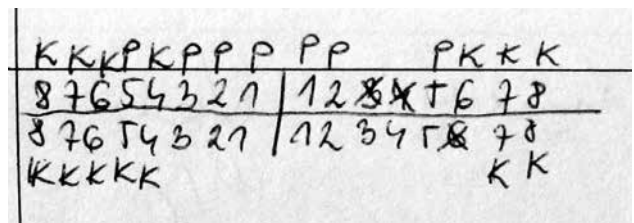 K K K P K P P P P P P K K K
8 7 6 5 4 3 2 1 | 1 2 3 4 5 6 7 8
8 7 6 5 4 3 2 1 | 1 2 3 4 5 6 7 8
K K K K K K K